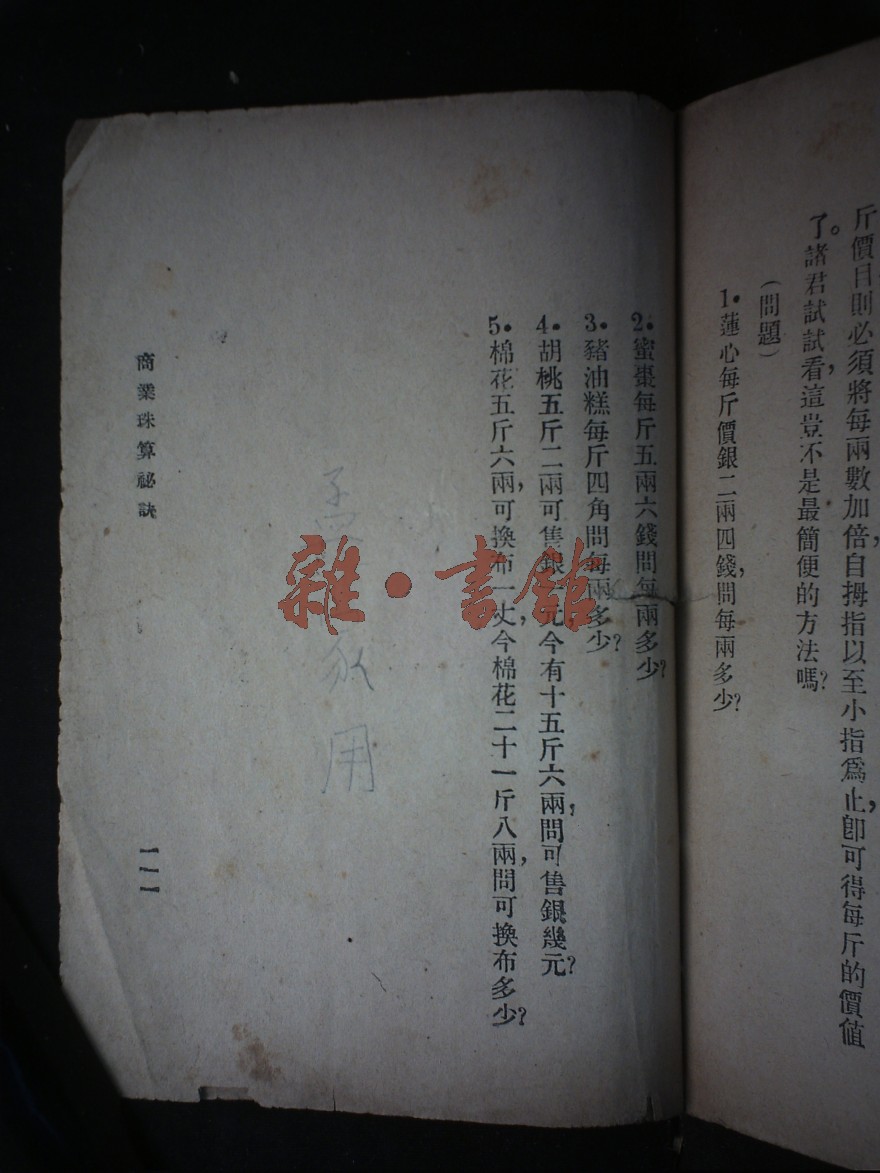 斤價目則必須將每兩數加倍，自拇指以至小指爲止，卽可得每斤的價值
了。諸君試試看，這豈不是最簡便的方法嗎？
（問題）
1.蓮心每斤價銀二兩四錢，問每兩多少？
2.蜜棗每斤五兩六錢問每兩多少？
3.豬油糕每斤四角問每兩多少？
4.胡桃五斤二兩可售銀一元，今有十五斤六兩，問可售銀幾元？
5.棉花五斤六兩，可換布一丈，今棉花二十一斤八兩，問可換布多少？
用
商業珠算祕訣
一一一
雜·書館